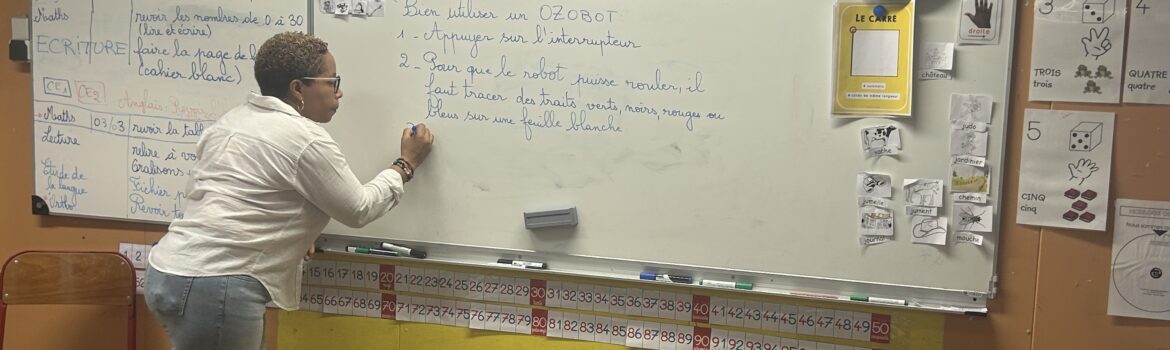 Maths
revoir les nombres de 0 à 30
(lire et écrire)
ECRITURE
faire la page de
(cahier blanc)
CE1
CE2
Anglais: Revoir
Maths
03/03
revoir la
Lecture
relire
Etude de
la langue
Ortho
Bien utiliser un OZOBOT
1 - Appuyer sur l'interrupteur
2 - Pour que le robot puisse rouler, il
faut tracer des traits verts, noirs, rouges ou
bleus sur une feuille blanche
LE CARRÉ
4 sommets
4 côtés de même longueur
droite
château
vache
judo
jardinier
jumelle
jument
chemin
journal
mouche
3
TROIS
trois
4
QUATRE
quatre
5
CINQ
cinq
1 2
15 16 17 18 19 20 21 22 23 24 25 26 27 28 29 30 31 32 33 34 35 36 37 38 39 40 41 42 43 44 45 46 47 48 49 50
64 65 66 67 68 69 70 71 72 73 74 75 76 77 78 79 80 81 82 83 84 85 86 87 88 89 90 91 92 93 94 95 96 97 98 99